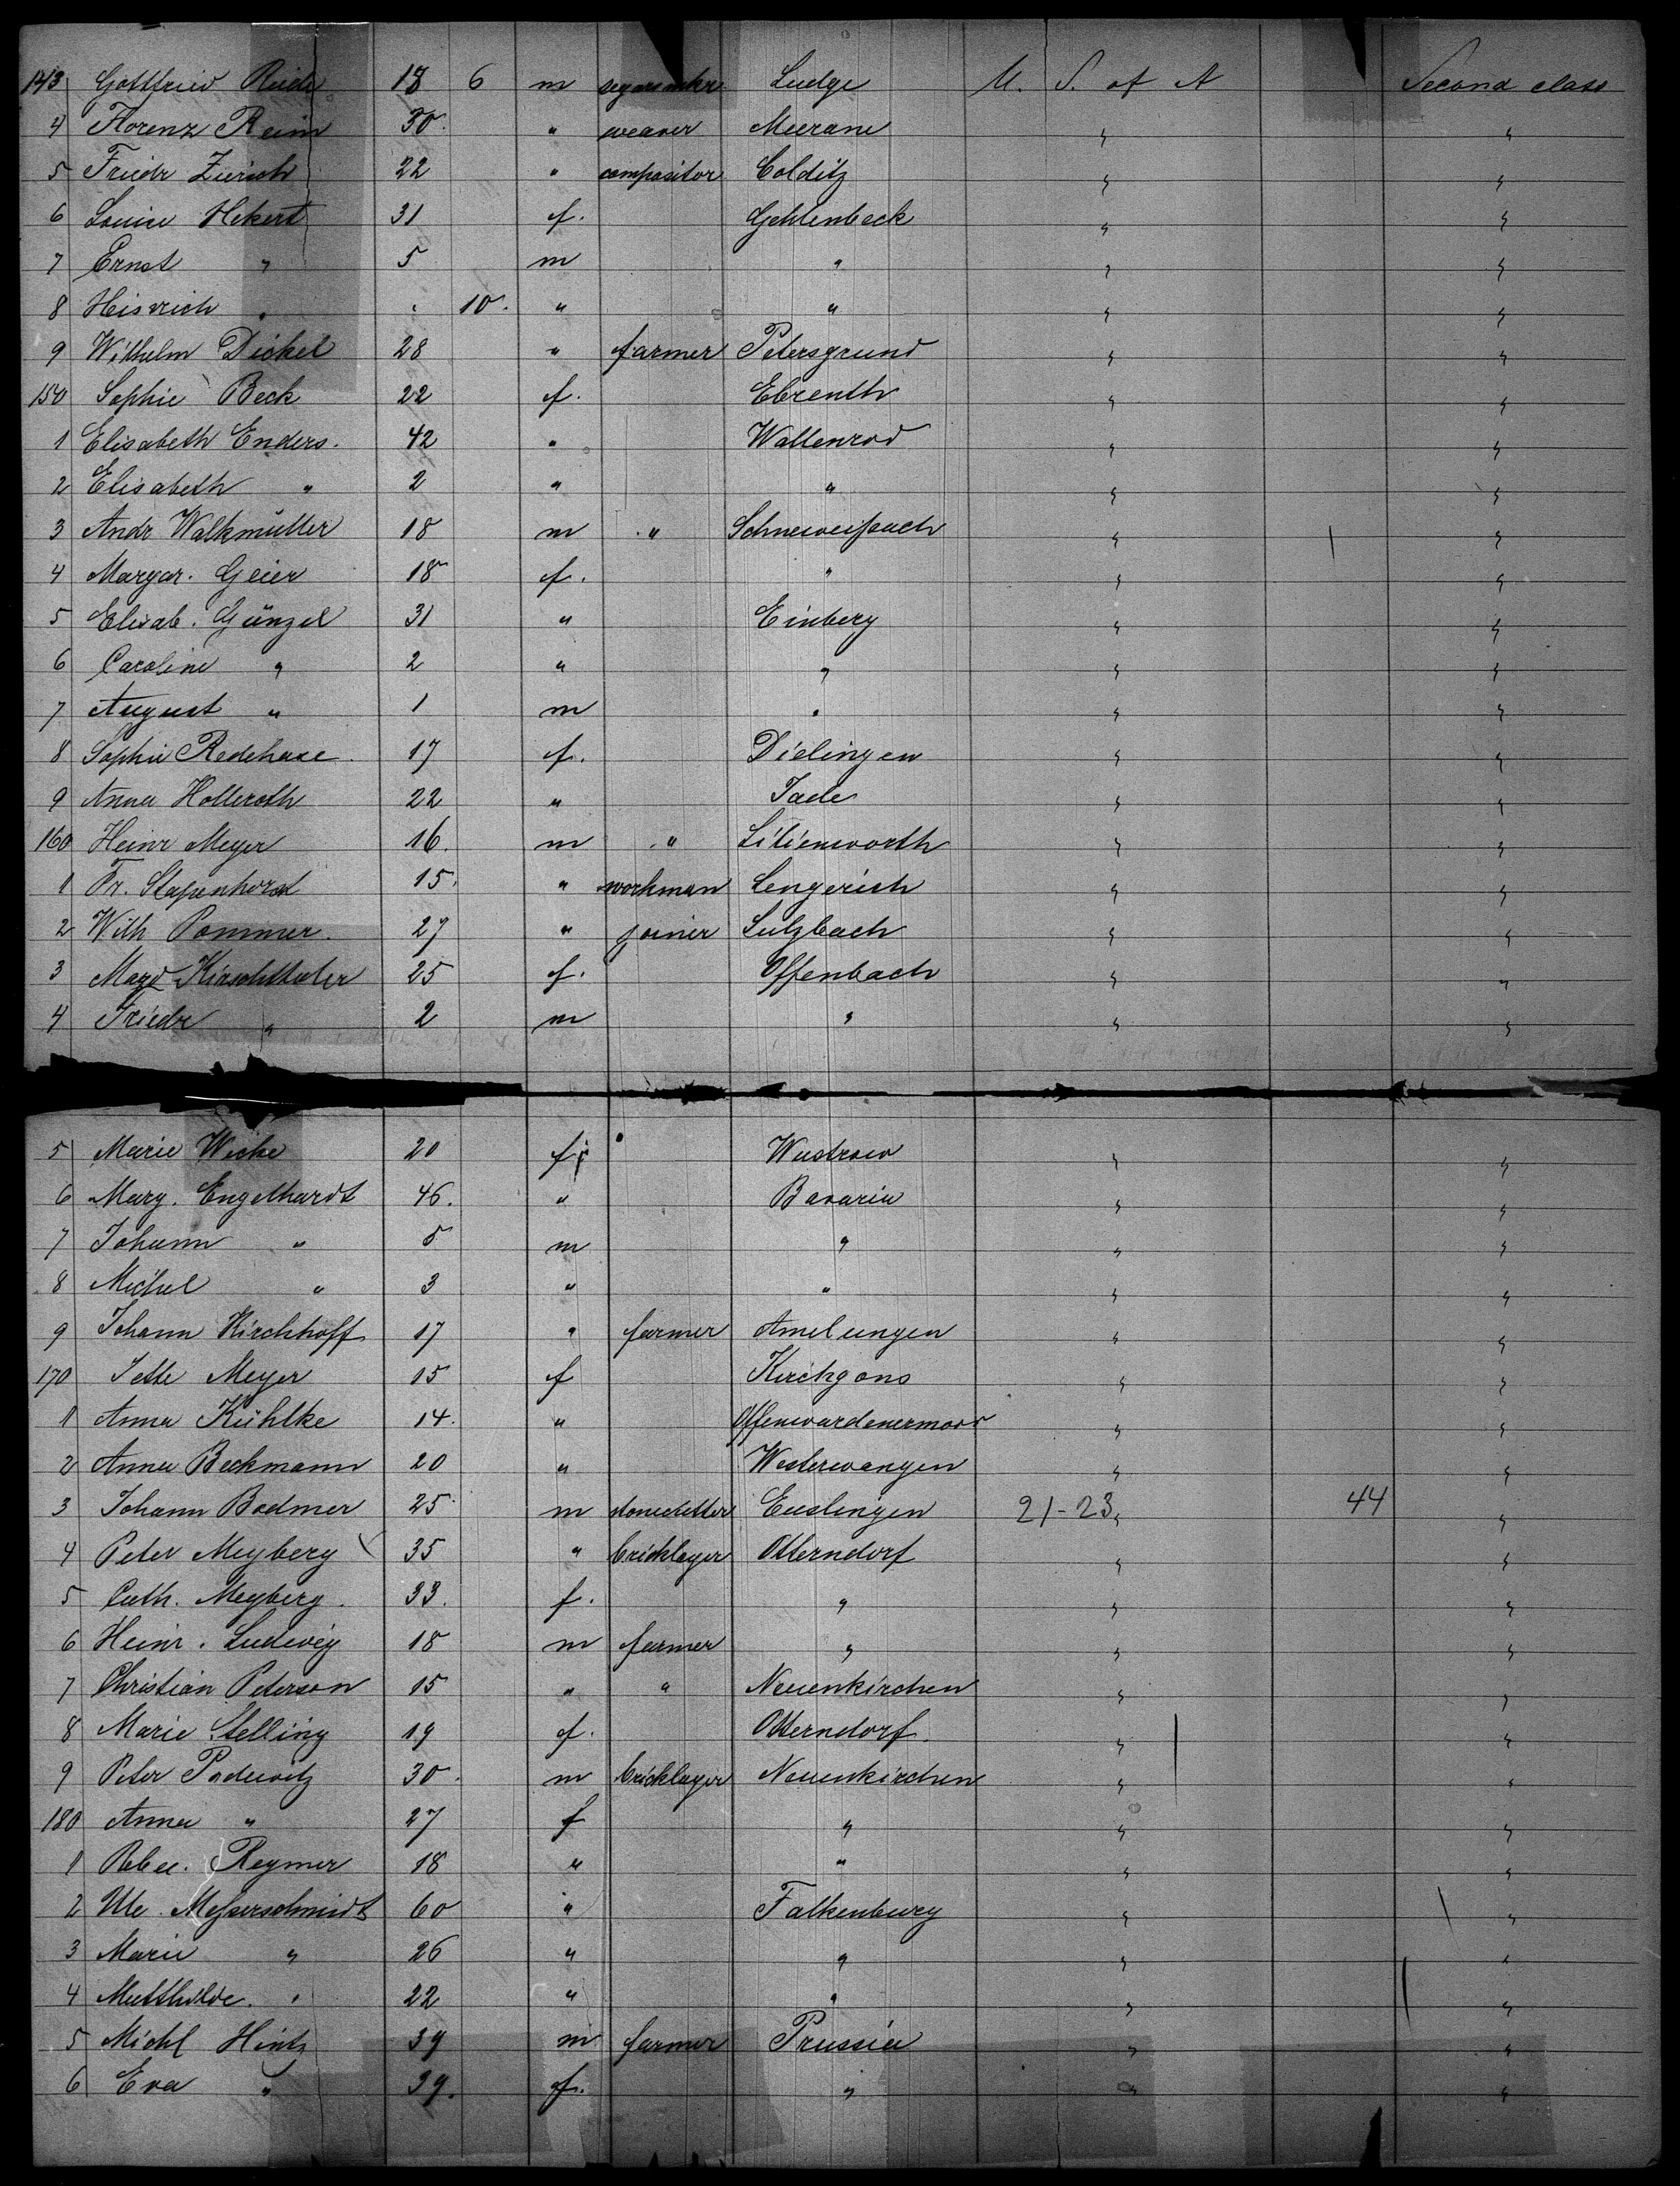 143 Gottfried 18 6 m segarmkr Ludge U. S. of A Second class
4 Florenz Reim 30. " weaver Meerane " "
5 Friedr Zürich 22 " compositor Colditz " "
6 Louise Hekert 31 f. Gehlenbeck " "
7 Ernst " 5 m " " "
8 Heinrich " " 10. " " " "
9 Wilhelm Dickel 28 " farmer Petersgrund " "
150 Sophie Beck 22 f. Ebrenth " "
1 Elisabeth Enders. 42 " Wallenrod " "
2 Elisabeth " 2 " " " "
3 Andr Walkmüller 18 m " " "
4 Margar. Geier 18 f. " " "
5 Elisab. Günzel 31 " Einberg " "
6 Caroline " 2 " " " "
7 August " 1 m " " "
8 Sophie Redehase. 17 f. Dielingen " "
9 Anna Holleroth 22 " Jade " "
160 Heinr Meyer 16. m " Lilienworth " "
1 Fr. Stapenhorst 15. " workman Lengerich " "
2 Wilh Pommer. 27 " joiner Sulzbach " "
3 Kirschthaler 25 f. Offenbach " "
4 Friedr " 2 m " " "
5 Marie Wicke 20 f. Wustrow " "
6 Marg. Engelhardt 46. " Bavaria " "
7 Johann " 5 m " " "
8 Michel " 3 " " " "
9 Johann Kirchhoff 17 " farmer Amelungen " "
170 Jette Meyer 15 f Kirchgons " "
1 Anna Kühlke 14. " Offenwardenermoor " "
2 Anna Beckmann 20 " Westerwangen " "
3 Johann Bodmer 25 m stonecutter Euslingen 21-23 " 44 "
4 Peter Meyberg 35 " bricklayer Otterndorf " "
5 Cath. Meyberg. 33. f. " " "
6 Heinr. Ludewig 18 m farmer " " "
7 Christian Peterson 15 " " Neuenkirchen " "
8 Marie Stelling 19 f. Otterndorf. " "
9 Peter Padewitz 30. m bricklayer Neuenkirchen " "
180 Anna " 27 f " " "
1 Rebec. Reymer 18 " " " "
2 Messerschmidt 60 " Falkenburg " "
3 Marie " 26 " " " "
4 Matthilde. " 22 " " " "
5 Michl Hintz 39 m farmer Prussia " "
6 Eva " 39. f. " " "